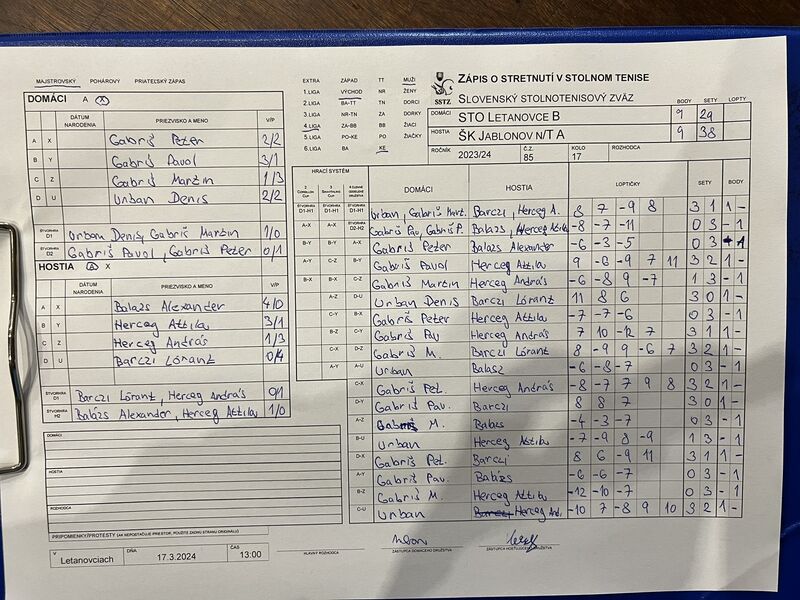 MAJSTROVSKÝ POHÁROVÝ PRIATEĽSKÝ ZÁPAS
DOMÁCI A X
DÁTUM NARODENIA PRIEZVISKO A MENO V/P
A X Gabriš Peter 2/2
B Y Gabriš Pavol 3/1
C Z Gabriš Martin 1/3
D U Urban Denis 2/2
ŠTVORHRA D1 Urban Denis, Gabriš Martin 1/0
ŠTVORHRA D2 Gabriš Pavol, Gabriš Peter 0/1
HOSTIA A X
DÁTUM NARODENIA PRIEZVISKO A MENO V/P
A X Balazs Alexander 4/0
B Y Herceg Attila 3/1
C Z Herceg András 1/3
D U Barczi Lórant 0/4
ŠTVORHRA Barczi Lórant, Herceg András 0/1
ŠTVORHRA H2 Balázs Alexander, Herceg Attila 1/0
DOMÁCI
HOSTIA
ROZHODCA
PRIPOMIENKY/PROTESTY (AK NEPOSTAČUJE PRIESTOR, POUŽITE ZADNÚ STRANU ORIGINÁLU)
V Letanovciach DŇA 17.3.2024 ČAS 13:00
EXTRA ZÁPAD TT MUŽI
1.LIGA VÝCHOD NR ŽENY
2.LIGA BA-TT TN DORCI
3.LIGA NR-TN ZA DORKY
4.LIGA ZA-BB BB ŽIACI
5.LIGA PO-KE PO ŽIAČKY
6.LIGA BA KE
SSTZ
ZÁPIS O STRETNUTÍ V STOLNOM TENISE
SLOVENSKÝ STOLNOTENISOVÝ ZVÄZ
BODY SETY LOPTY
DOMÁCI STO LETANOVCE B 9 29
HOSTIA ŠK JABLONOV N/T A 9 38
ROČNÍK 2023/24 Č.Z. 85 KOLO 17 ROZHODCA
HRACÍ SYSTÉM DOMÁCI HOSTIA LOPTIČKY SETY BODY
ŠTVORHRA D1-H1 ŠTVORHRA D1-H1 ŠTVORHRA D1-H1 Urban, Gabriš Mart. Barczi, Herceg A. 8 7 -9 8 3 1 1 -
A-X A-X ŠTVORHRA D2-H2 Gabriš Pav, Gabriš P. Balazs, Herceg Attila -8 -7 -11 0 3 - 1
B-Y B-Y A-X Gabriš Peter Balazs Alexander -6 -3 -5 0 3 - 1
A-Y C-Z B-Y Gabriš Pavol Herceg Attila 9 -6 -9 7 11 3 2 1 -
B-X B-X C-Z Gabriš Martin Herceg András -6 -8 9 -7 1 3 - 1
A-Z D-U Urban Denis Barczi Lórant 11 8 6 3 0 1 -
C-Y B-X Gabriš Peter Herceg Attila -7 -7 -6 0 3 - 1
B-Z C-Y Gabriš Pav Herceg András 7 10 -12 7 3 1 1 -
C-X D-Z Gabriš M. Barczi Lórant 8 -9 9 -6 7 3 2 1 -
A-Y A-U Urban Balasz -6 -8 -7 0 3 - 1
C-X Gabriš Pet. Herceg András -8 -7 7 9 8 3 2 1 -
D-Y Gabriš Pav. Barczi 8 8 7 3 0 1 -
A-Z M. Balazs -4 -3 -7 0 3 - 1
B-U Urban Herceg Attila -7 -9 8 -9 1 3 - 1
D-X Gabriš Pet. Barczi 8 6 -9 11 3 1 1 -
A-Y Gabriš Pav. Balázs -6 -6 -7 0 3 - 1
B-Z Gabriš M. Herceg Attila -12 -10 -7 0 3 - 1
C-U Urban Herceg And. -10 7 -8 9 10 3 2 1 -
HLAVNÝ ROZHODCA ZÁSTUPCA DOMÁCEHO DRUŽSTVA ZÁSTUPCA HOSŤUJÚCEHO DRUŽSTVA